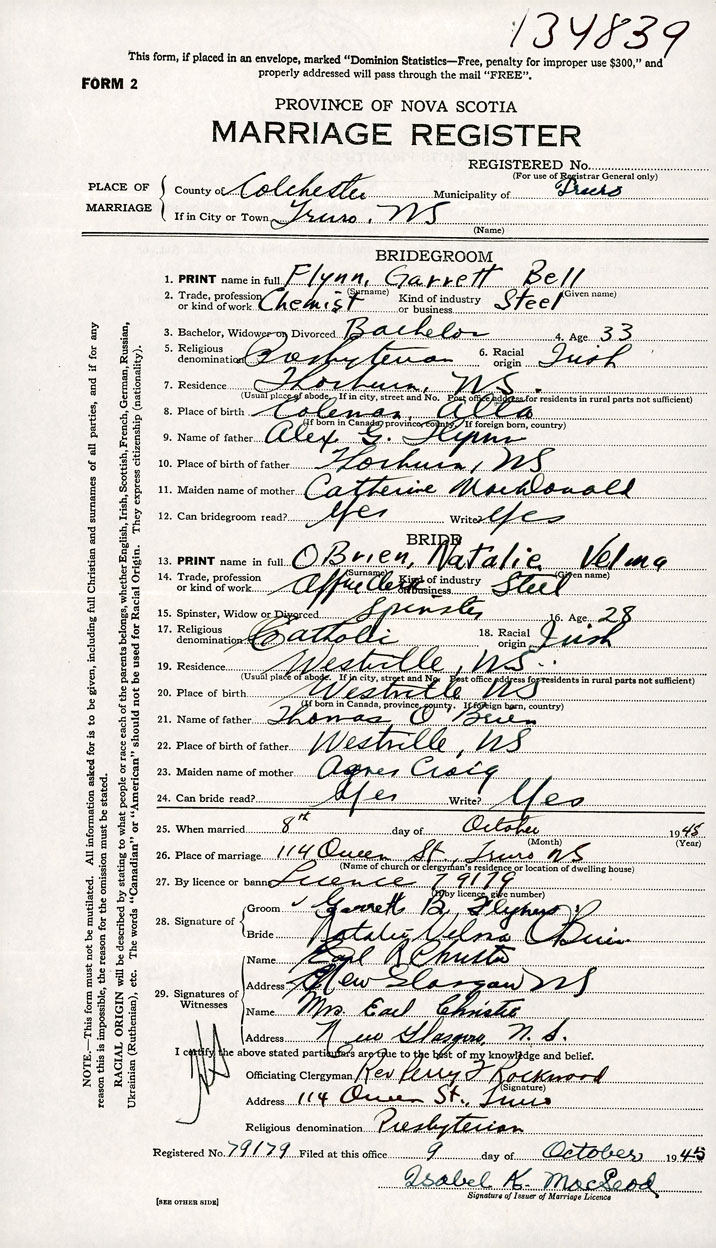 134839
This form, if placed in an envelope, marked "Dominion Statistics—Free, penalty for improper use $300," and
properly addressed will pass through the mail "FREE".
FORM 2
PROVINCE OF NOVA SCOTIA
MARRIAGE REGISTER
REGISTERED No.
(For use of Registrar General only)
PLACE OF MARRIAGE
County of Colchester Municipality of Truro
If in City or Town Truro, NS
(Name)
BRIDEGROOM
1. PRINT name in full Flynn, Garrett Bell
(Surname) (Given name)
2. Trade, profession or kind of work Chemist Kind of industry or business Steel
3. Bachelor, Widower or Divorced Bachelor 4. Age 33
5. Religious denomination Presbyterian 6. Racial origin Irish
7. Residence Thorburn, NS.
(Usual place of abode. If in city, street and No. Post office address for residents in rural parts not sufficient)
8. Place of birth Coleman, Alta
(If born in Canada, province, county. If foreign born, country)
9. Name of father Alex G. Flynn
10. Place of birth of father Thorburn, NS
11. Maiden name of mother Catherine MacDonald
12. Can bridegroom read? Yes Write Yes
BRIDE
13. PRINT name in full O'Brien, Natalie Velma
(Surname) (Given name)
14. Trade, profession or kind of work Office Clerk Kind of industry or business Steel
15. Spinster, Widow or Divorced Spinster 16. Age 28
17. Religious denomination Catholic 18. Racial origin Irish
19. Residence Westville, NS.
(Usual place of abode. If in city, street and No. Post office address for residents in rural parts not sufficient)
20. Place of birth Westville NS
(If born in Canada, province, county. If foreign born, country)
21. Name of father Thomas O'Brien
22. Place of birth of father Westville, NS
23. Maiden name of mother Agnes Craig
24. Can bride read? Yes Write? Yes
25. When married 8th day of October 1945
(Month) (Year)
26. Place of marriage 114 Queen St., Truro NS
(Name of church or clergyman's residence or location of dwelling house)
27. By licence or banns Licence 79179
(If by licence, give number)
28. Signature of
Groom Garrett B. Flynn
Bride Natalie Velma O'Brien
29. Signatures of Witnesses
Name Earl R Christie
Address New Glasgow NS
Name Mrs. Earl Christie
Address New Glasgow, N.S.
I certify the above stated particulars are true to the best of my knowledge and belief.
Officiating Clergyman Rev Perry F Rockwood
(Signature)
Address 114 Queen St., Truro
Religious denomination Presbyterian
Registered No. 79179 Filed at this office 9 day of October 1945
Isabel K. MacLeod
Signature of Issuer of Marriage Licence
[SEE OTHER SIDE]
NOTE.—This form must not be mutilated. All information asked for is to be given, including full Christian and surnames of all parties, and if for any
reason this is impossible, the reason for the omission must be stated.
RACIAL ORIGIN will be described by stating to what people or race each of the parents belongs, whether English, Irish, Scottish, French, German, Russian,
Ukrainian (Ruthenian), etc. The words "Canadian" or "American" should not be used for Racial Origin. They express citizenship (nationality).